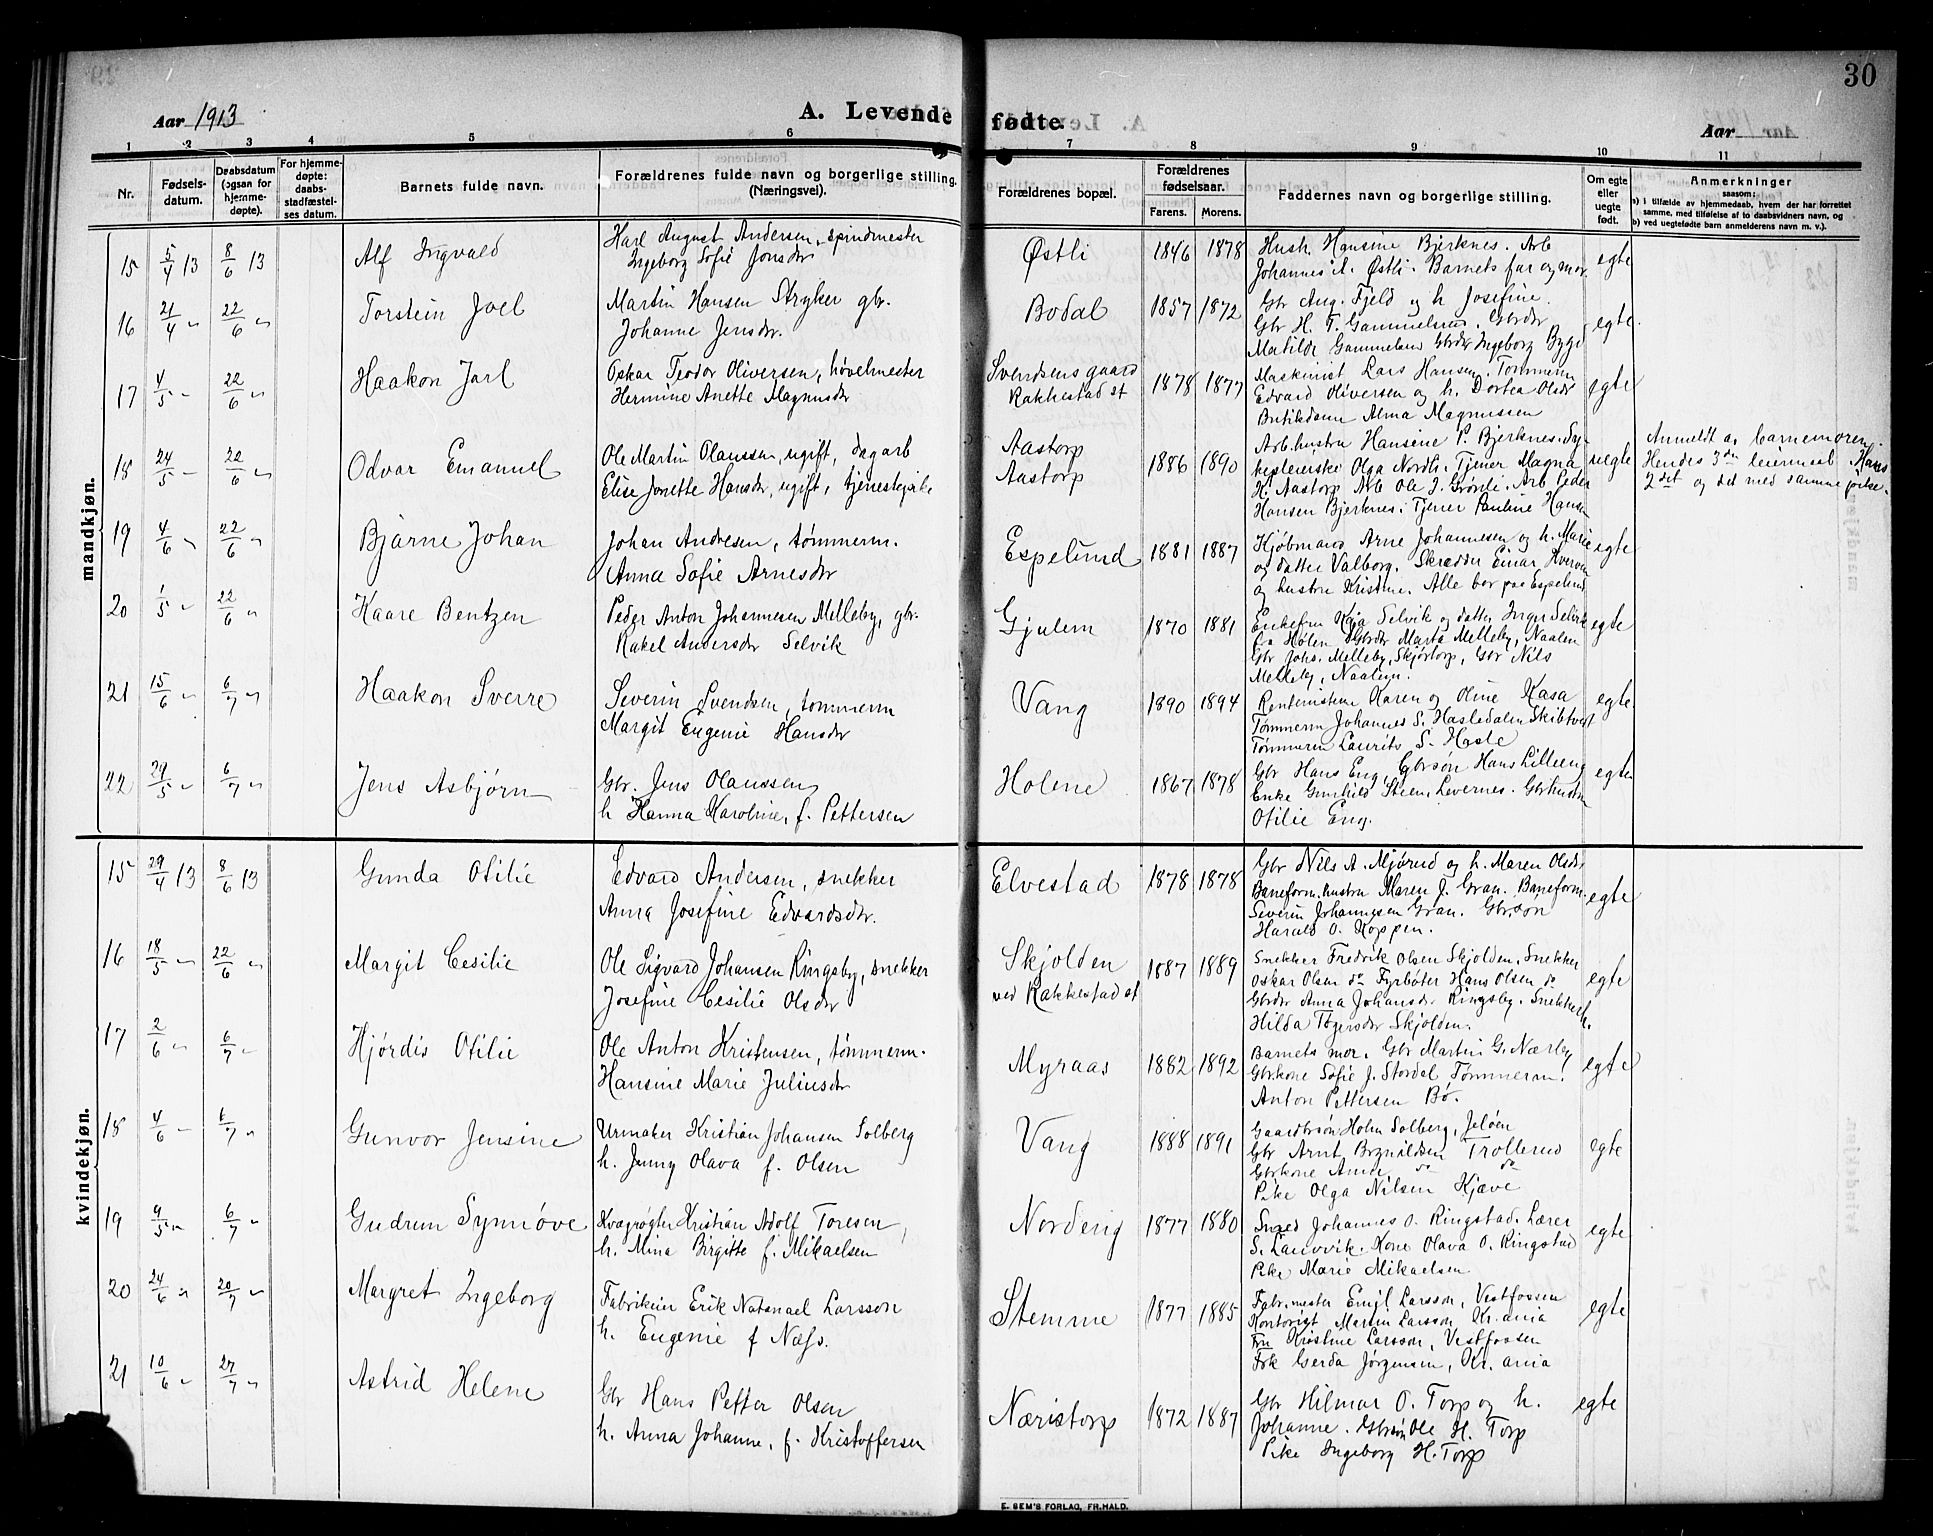 30
Aar 1913
A. Levende fødte.
Aar
1 2 3 4 5 6 7 8 9 10 11
Nr.
Fødsels-
datum.
Daabsdatum
(ogsaa for
hjemme-
døpte).
For hjemme-
døpte:
daabs-
stadfæstel-
ses datum.
Barnets fulde navn.
Forældrenes fulde navn og borgerlige stilling.
(Næringsvei).
Forældrenes bopæl.
Forældrenes
fødselsaar.
Farens. Morens.
Faddernes navn og borgerlige stilling.
Om egte
eller
uegte
født.
Anmerkninger
saasom:
a) i tilfælde av hjemmedaab, hvem der har forrettet
samme, med tilføielse af to daabsvidners navn, og
b) ved uegtefødte barn anmelderens navn m. v.).
mandkjøn.
15 5/4 13 8/6 13 Alf Ingvald
Karl August Andersen, spindmester
Ingeborg Sofie Jonsdr
Østli 1846 1878
Hush. Hansine Bjerknes. Arb
Johannes A. Østli. Barnets far og mor.
egte
16 21/4 " 22/6 " Torstein Joel
Martin Hansen Stryker gbr.
Johanne Jensdr.
Bodal 1857 1872
Gbr Aug. Fjeld og h. Josefine.
Gbr H. T. Gammelsrud. Gbrdr
Matilde Gammelsrud Gbrdr Ingeborg Byge
egte.
17 4/5 " 22/6 " Haakon Jarl
Oskar Teodor Oliversen, høvelmester
Hermine Anette Magnusdr
Svendsens gaard
Rakkestad st
1878 1877
Maskinist Lars Hansen. Tømmerm
Edvard Oliversen og h. Dortea Olsdr
Butikdame Alma Magnussen
egte
18 24/5 " 22/6 " Odvar Emanuel
Ole Martin Olaussen, ugift, dagarb
Elise Jonette Hansdr, ugift, tjenestepike
Aastorp
Aastorp
1886 1890
Arb.hustru Hansine P. Bjerknes. Sy-
kepleierske Olga Nordli. Tjener Magna
H. Aastorp Arb Ole J. Grønli. Arb Peder
Hansen Bjerknes. Tjener Pauline Hansen
uegte
Anmeldt av barnemoren.
Hendes 3die leiermaal. Hans
2det og det med samme pike.
19 4/6 " 22/6 " Bjarne Johan
Johan Andresen, tømmerm.
Anna Sofie Arnesdr
Espelund 1881 1887
Kjøbmand Arne Johannesen og h. Marie
og datter Valborg. Skrædder Einar Kverum
og hustru Kristine. Alle bor paa Espelund
egte
20 1/5 " 22/6 " Kaare Bentzen
Peder Anton Johannesen Melleby, gbr.
Rakel Andersdr Selvik
Gjulem 1870 1881
Enkefru Kaja Selvik og datter Inga Selvik
Gbrdr Marta Melleby, Naalen
Gbr Johs. Melleby, Skjørtorp, Gbr Nils
Melleby, Naalen.
egte
21 15/6 " 6/7 " Haakon Sverre
Severin Svendsen, tømmerm
Margit Eugenie Hansdr
Vang 1890 1894
Karen og Oline Kasa
Tømmerm Johannes S. Hasledalen Skibtvet
Tømmerm Laurits S. Hasle
egte
22 29/5 " 6/7 " Jens Asbjørn
Gbr. Jens Olaussen
h Hanna Karoline, f. Pettersen
Holene 1867 1878
Gbr Hans Eng, Gbrsøn Hans Lilleeng
Enke Gunhild Steen, Levernes. Gbrhustru
Otilie Eng.
egte
kvindekjøn.
15 29/4 13 8/6 13 Gunda Otilie
Edvard Andersen, snekker
Anna Josefine Edvardsdr.
Elvestad 1878 1878
Gbr Nils A. Mjørud og h. Maren Olsdr.
Baneform.hustru Maren J. Gran. Baneform.
Severin Johannesen Gran. Gbrsøn
Harald O. Koppen.
egte
16 18/5 " 22/6 " Margit Cesilie
Ole Sigvard Johansen Ringsby, snekker
Josefine Cesilie Olsdr
Skjolden
ved Rakkestad st
1887 1889
Snekker Fredrik Olsen Skjolden. Snekker
Oskar Olsen do Fyrbøter Hans Olsen do
Gbrdr Anna Johansdr Ringsby. Snekkerh.
Hilda Tøgersdr Skjolden.
egte
17 2/6 " 6/7 " Hjørdis Otilie
Ole Anton Kristensen, tømmerm.
Hansine Marie Juliusdr
Myraas 1882 1892
Barnets mor. Gbr Martin G. Nærby
Gbrkone Sofie J. Stordal Tømmerm.
Anton Pettersen Bø.
egte
18 4/6 " 6/7 " Gunvor Jensine
Urmaker Kristian Johansen Solberg
h. Jenny Olava f. Olsen
Vang 1888 1891
Holm Solberg, Jeløen
Gbr Arnt Brynildsen Trollerud
Gbrkone Anna do do
Pike Olga Nilsen Kjæve
egte
19 9/5 " 6/7 " Gudrun Synnøve
Kvægrøgter Kristian Adolf Toresen,
h. Mina Birgitte f. Mikaelsen
Norderig 1877 1880
Smed Johannes O. Ringstad. Lærer
S. Lauvvik. Kone Olava O. Ringstad
Pike Marie Mikaelsen
egte
20 24/6 " 20/7 " Margret Ingeborg
Fabrikeier Erik Natanael Larsson
h. Eugenie f Næss.
Stemme 1877 1885
Fabr.mester Emil Larsson, Vestfossen
Kontorist Martin Larsson Kr.ania
Fru Kristine Larsson, Vestfossen
Frk Gerda Jørgensen, Kr.ania
egte
21 10/6 " 27/7 " Astrid Helene
Gbr Hans Petter Olsen
h. Anna Johanne, f. Kristoffersen
Næristorp 1872 1887
Gbr Hilmar O. Torp og h.
Johanne. Gbrsøn Ole H. Torp
Pike Ingeborg H. Torp
egte
E. SEM'S FORLAG, FR.HALD.